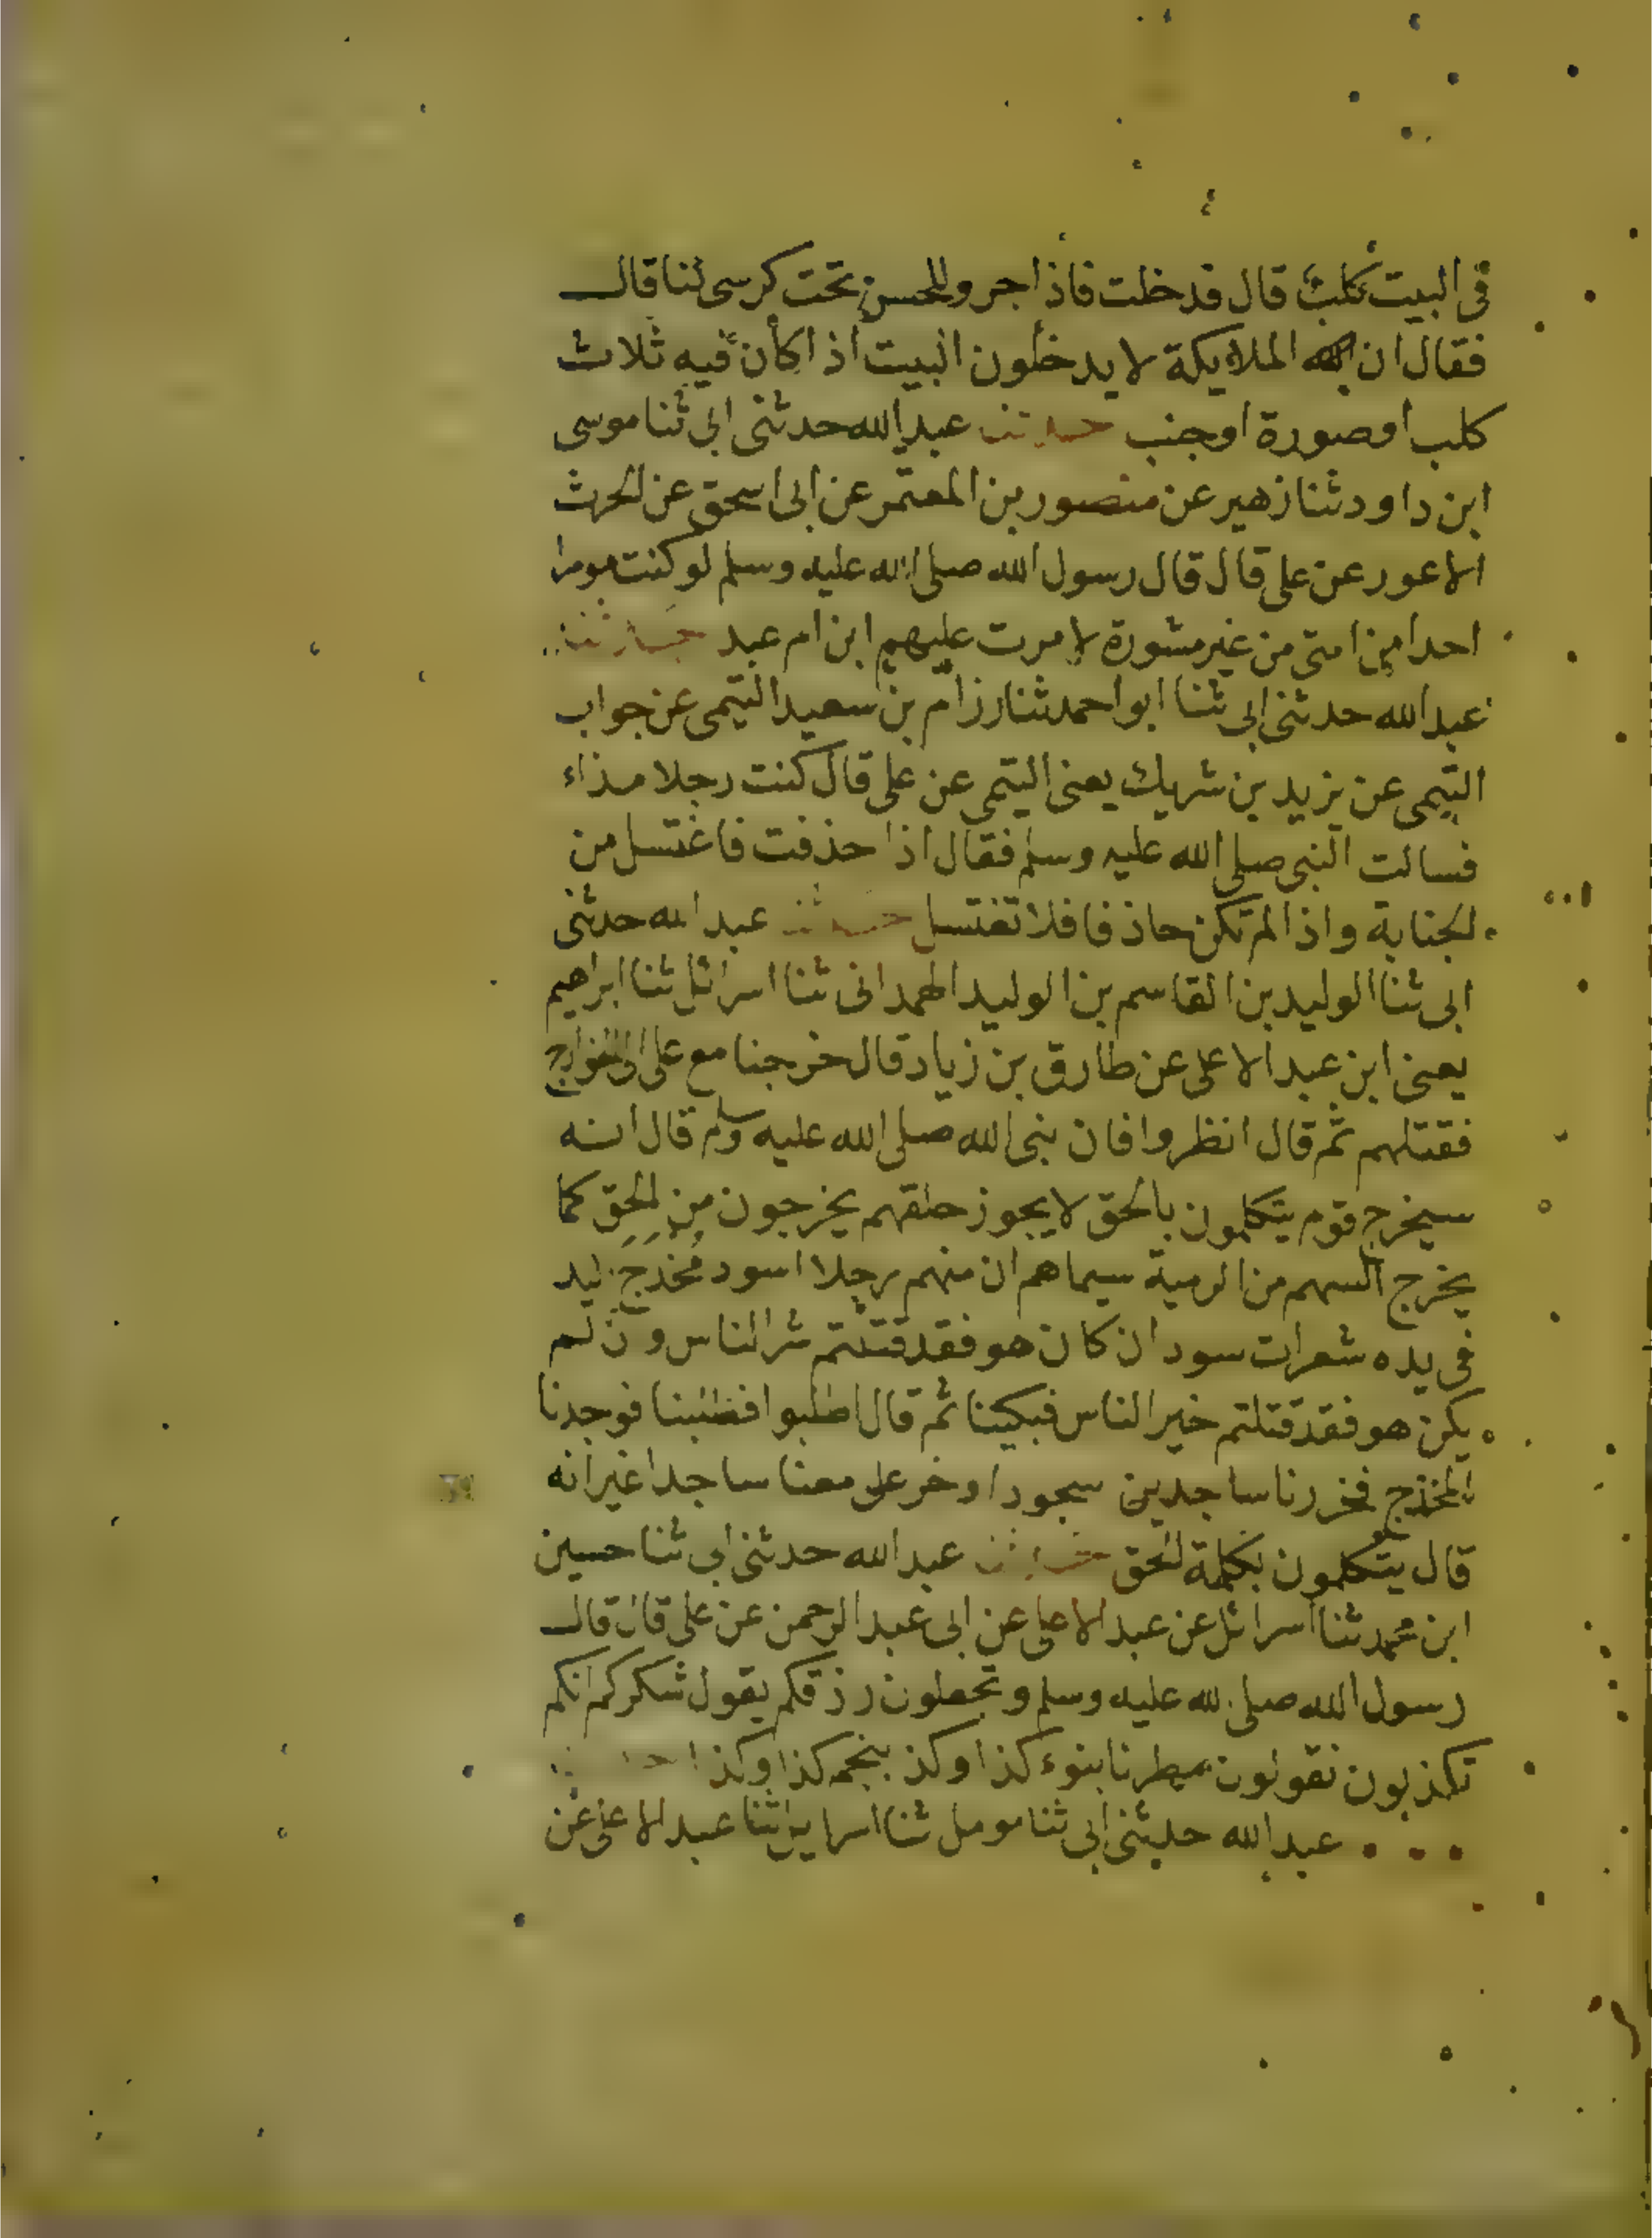 في البيت كلب قال فدخلت فاذا جرو للحسن تحت كرسى لنا قال
فقال ان الملايكة لا يدخلون البيت اذا كان فيه ثلاث
كلب او صورة او جنب حدثنا عبد الله حدثنى ابى ثنا موسى
ابن داود ثنا زهير عن منصور بن المعتمر عن ابى اسحق عن الحرث
الاعور عن على قال قال رسول الله صلى الله عليه وسلم لو كنت مومرا
احدا من امتى من غير مشورة لامرت عليهم ابن ام عبد حدثنا
عبد الله حدثنى ابى ثنا ابو احمد ثنا رزام بن سعيد التيمى عن جواب
التيمى عن يزيد بن شريك يعنى التيمى عن على قال كنت رجلا مذاء
فسالت النبى صلى الله عليه وسلم فقال اذا حذفت فاغتسل من
الجنابة واذا لم تكن حاذفا فلا تغتسل حدثنا عبد الله حدثنى
ابى ثنا الوليد بن القاسم بن الوليد الهمدانى ثنا اسرائل ثنا ابراهيم
يعنى ابن عبد الاعلى عن طارق بن زياد قال خرجنا مع على الى الخوارج
فقتلهم ثم قال انظروا فان نبى الله صلى الله عليه وسلم قال انه
سيخرج قوم يتكلمون بالحق لا يجوز حلقهم يخرجون من الحق كما
يخرج السهم من الرمية سيماهم ان منهم رجلا اسود مُخْدَجَ اليد
فى يده شعرات سود ان كان هو فقد قتلتم شر الناس وان لم
يكن هو فقد قتلتم خير الناس فبكينا ثم قال اطلبوا فطلبنا فوجدنا
المخدج فخررنا ساجدين سجودا وخر على معنا ساجدا غير انه
قال يتكلمون بكلمة الحق حدثنا عبد الله حدثنى ابى ثنا حسين
ابن محمد ثنا اسرائل عن عبد الاعلى عن ابى عبد الرحمن عن على قال قال
رسول الله صلى الله عليه وسلم وتجعلون رزقكم يقول شكركم انكم
تكذبون تقولون مطرنا بنوء كذا وكذا بنجم كذا وكذا حدثنا
عبد الله حدثنى ابى ثنا مومل ثنا اسرايل ثنا عبد الاعلى عن